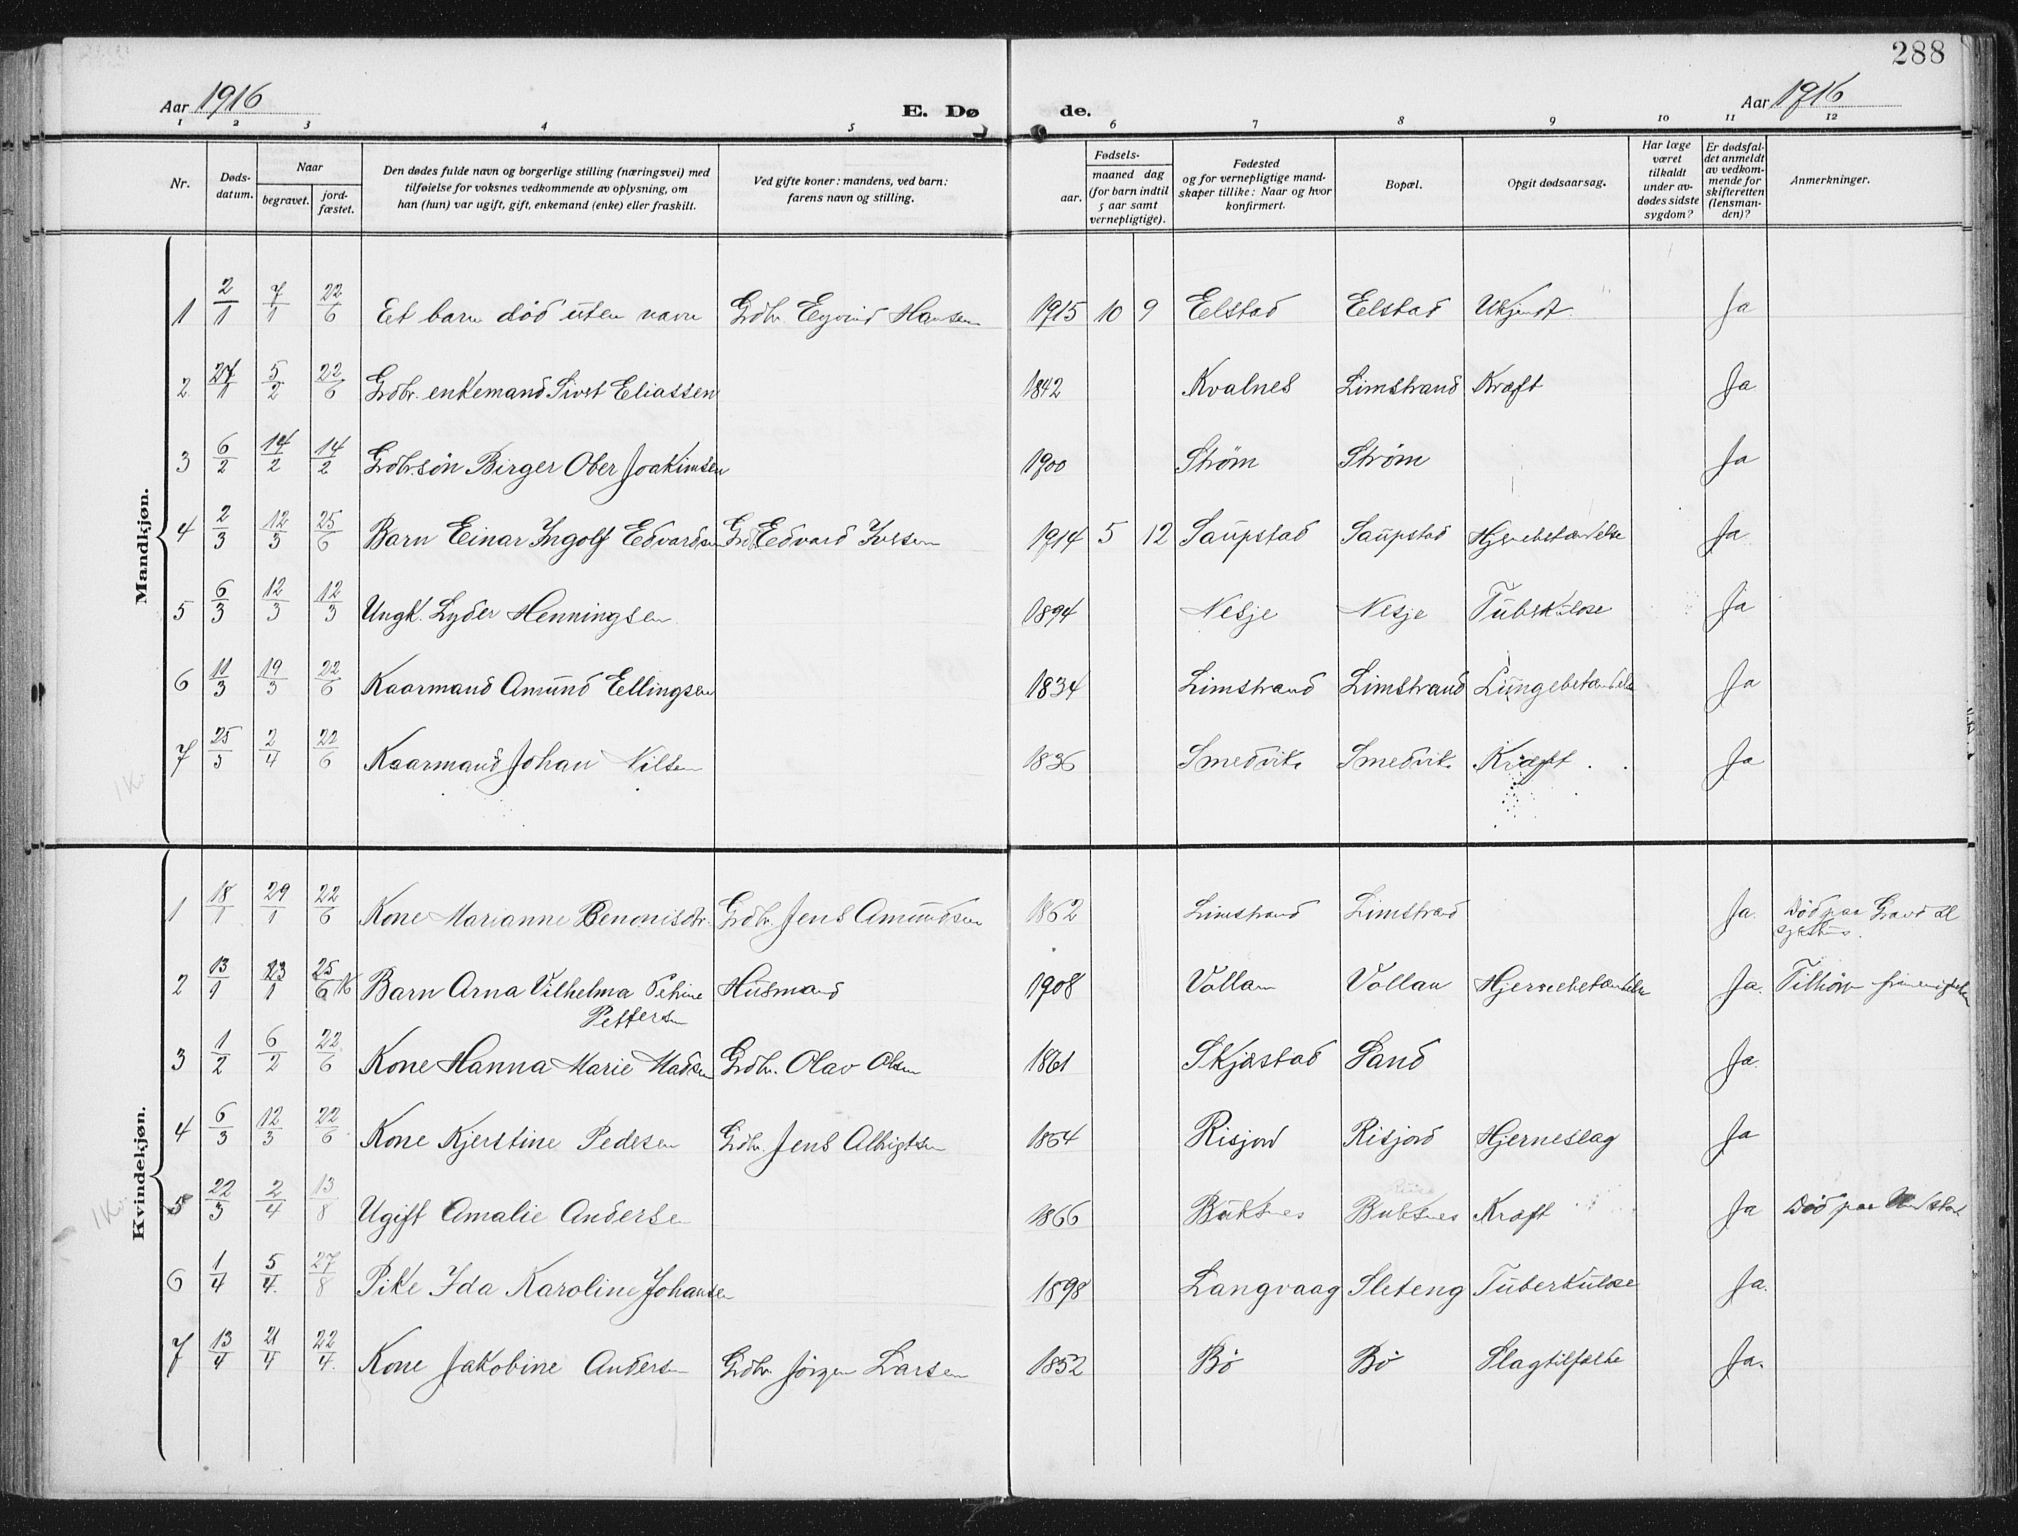 288
Aar 1916 E. Døde. Aar 1916
1 2 3 4 5 6 7 8 9 10 11 12
Nr. Døds-datum. Naar begravet. jord-fæstet. Den dødes fulde navn og borgerlige stilling (næringsvei) med tilføielse for voksnes vedkommende av oplysning, om han (hun) var ugift, gift, enkemand (enke) eller fraskilt. Ved gifte koner: mandens, ved barn: farens navn og stilling. Fødsels- aar. maaned dag (for barn indtil 5 aar samt vernepligtige). Fødested og for vernepligtige mand-skaper tillike: Naar og hvor konfirmert. Bopæl. Opgit dødsaarsag. Har læge været tilkaldt under av-dødes sidste sygdom? Er dødsfal-det anmeldt av vedkom-mende for skifteretten (lensman-den)? Anmerkninger.
Mandkjøn.
1 2/1 7/1 22/6 Et barn död uten navn Grdbr. Eyvind Hansen 1915 10 9 Elstad Elstad Ukjendt Ja
2 27/1 5/2 22/6 Grdbr. enkemand Sivert Eliassen 1842 Kvalnes Limstrand Kræft Ja
3 6/2 14/2 14/2 Grdbrsön Birger Ober Joakimsen 1900 Ström Ström Ja
4 2/3 12/3 25/6 Barn Einar Ingolf Edvardsen Grdbr. Edvard Iversen 1914 5 12 Saupstad Saupstad Hjernebetændelse Ja
5 6/3 12/3 12/3 Ungk. Lyder Henningsen 1894 Nesje Nesje Tuberkulose Ja
6 11/3 19/3 22/6 Kaarmand Amund Ellingsen 1834 Limstrand Limstrand Lungebetændelse Ja
7 25/3 2/4 22/6 Kaarmand Johan Nilsen 1836 Smedvik Smedvik Kræft Ja
Kvindekjøn.
1 18/1 29/1 22/6 Kone Marianne Benonisdtr. Grdbr. Jens Amundsen 1862 Limstrand Limstrand Ja. Död paa Gravdal sykehus.
2 13/1 23/1 25/6 16 Barn Arna Vilhelma Petrine Pettersen Husmand 1908 Vollan Vollan Hjernebetændelse Ja. Tilhörer
3 1/2 6/2 22/6 Kone Hanna Marie Madsen Grdbr. Olav Olsen 1861 Skjæstad Sand Ja.
4 6/3 12/3 22/6 Kone Kjerstine Pedersen Grdbr. Jens Albrigtsen 1854 Risjord Risjord Hjerneslag Ja
5 22/3 2/4 13/8 Ugift Amalie Andersen 1866 Buksnes Buksnes Kræft Ja Död paa
6 1/4 5/4. 27/8 Pike Ida Karoline Johansen 1898 Langvaag Sleteng Tuberkulose Ja.
7 13/4 21/4 22/4. Kone Jakobine Andersen Grdbr. Jörgen Larsen 1852 Bö Bö Slagtilfælde Ja.